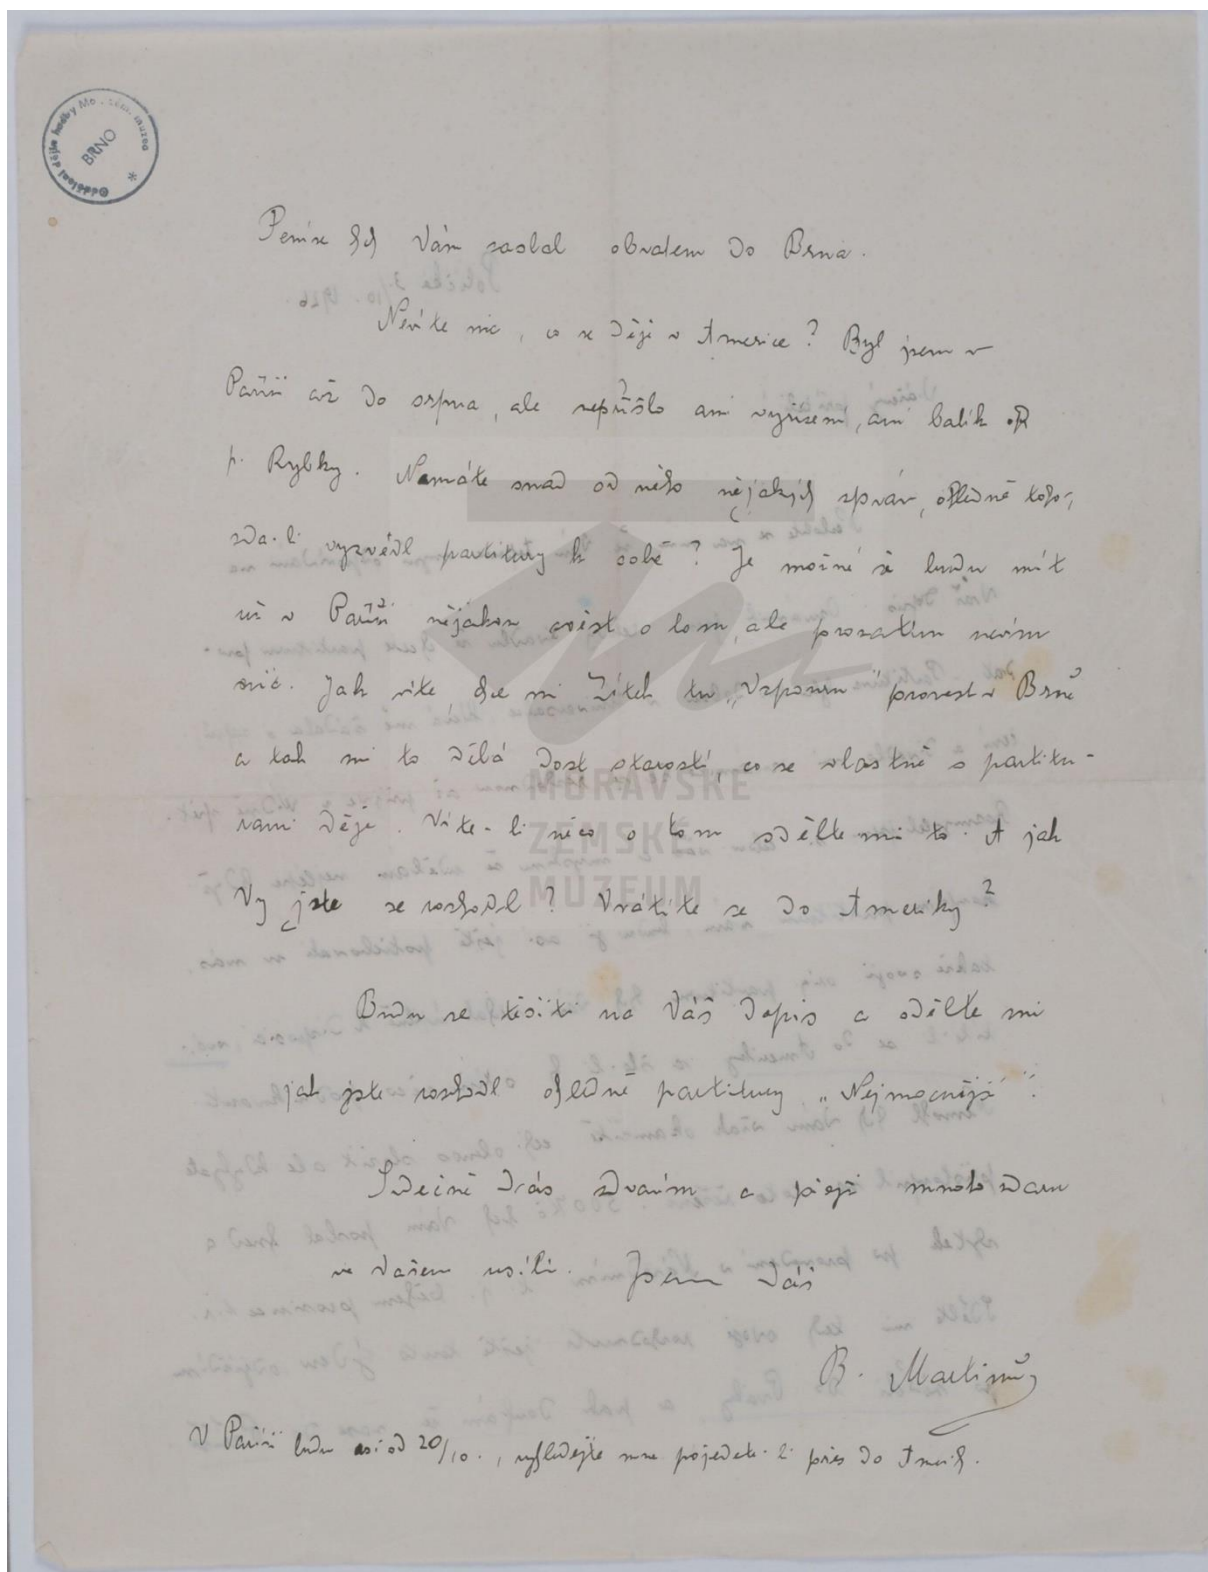 Oddělení dějin hudby Mo. zem. muzea
BRNO
Peníze bych Vám zaslal obratem do Brna.
Nevíte nic, co se děje v Americe? Byl jsem v
Paříži až do srpna, ale nepřišlo ani vyřízení, ani balík od
p. Rybky. Nemáte snad od něho nějakých zpráv, ohledně toho,
zda-li vyzvedl partitury k sobě? Je možné že budu mít
už v Paříži nějakou zvěst o tom, ale prozatím nevím
nic. Jak víte, chce mi Zítek tu „Vzpouru" provest v Brně
a tak mi to dělá dost starostí, co se vlastně s partitu-
rami děje. Víte-li něco o tom sdělte mi to. A jak
Vy jste se rozhodl? Vrátíte se do Ameriky?
Budu se těšiti na Váš dopis a sdělte mi
jak jste rozhodl ohledně partitury „Nejmocnější".
Srdečně Vás zdravím a přeji mnoho zdaru
ve Vašem usílí. Jsem Váš
B. Martinů
V Paříži budu asi od 20/10., vyhledejte mne pojedete-li přes do Amerik.
MORAVSKÉ
ZEMSKÉ
MUZEUM